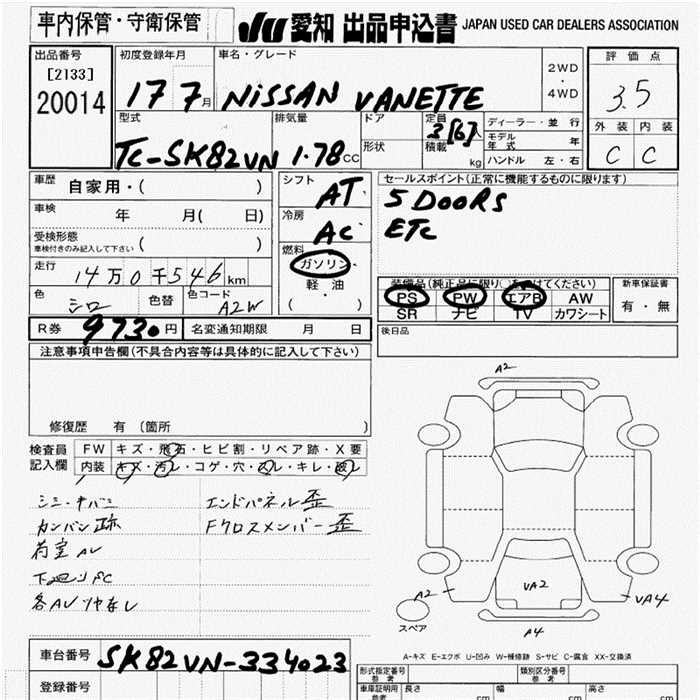 車内保管・守衛保管
JU 愛知 出品申込書 JAPAN USED CAR DEALERS ASSOCIATION
出品番号
[2133]
20014
初度登録年月
17 7月
車名・グレード
NISSAN VANETTE
2WD
・
4WD
評価点
3.5
外装 内装
C C
型式
TC-SK82VN
排気量
1.78cc
ドア
形状
定員
3[6]人
積載
kg
ディーラー・並行
モデル年式 年
ハンドル 左・右
車歴 自家用・( )
車検 年 月( 日)
受検形態
車検付きのみ記入して下さい ( )
走行 14万0千546km
色 シロ 色替 色コード A2W
R券 9730円 名変通知期限 月 日
シフト AT
冷房 AC
燃料
ガソリン
軽油
( )
セールスポイント(正常に機能するものに限ります)
5 DOORS
ETC
装備品(純正品に限り○を付けてください)
PS PW エアB AW
SR ナビ TV カワシート
新車保証書
有・無
後日品
注意事項申告欄(不具合内容等は具体的に記入して下さい)
修復歴 有 (箇所 )
検査員記入欄
FW キズ・飛石・ヒビ割・リペア跡・X要
内装 キズ・汚レ・コゲ・穴・スレ・キレ・破レ
カンバン跡
荷室AV
エンドパネル歪
Fクロスメンバー歪
各AUツヤなし
A2
A2
VA2
VA4
A4
スペア
A-キズ E-エクボ U-凹み W-補修跡 S-サビ C-腐食 XX-交換済
車台番号 SK82VN-334023
登録番号
形式指定番号 参考
類別区分番号 参考
車庫証明用 参考
長さ cm
幅 cm
高さ cm